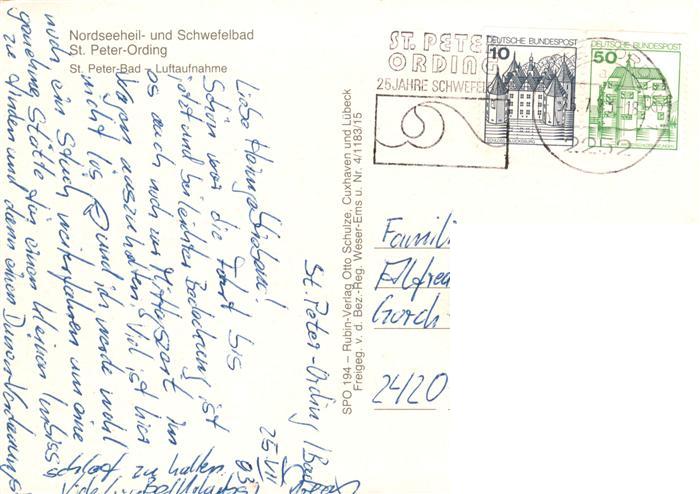 Nordseeheil- und Schwefelbad
St. Peter-Ording
St. Peter-Bad – Luftaufnahme
ST. PETER
ORDING
25 JAHRE SCHWEFEL
DEUTSCHE BUNDESPOST
10
DEUTSCHE BUNDESPOST
50
2252
SPO 194 – Rubin-Verlag Otto Schulze, Cuxhaven und Lübeck
Freigeg. v. d. Bez.-Reg. Weser-Ems u. Nr. 4/1183/15
St. Peter-Ording / Bad
25. VII
Schön war die Fahrt bis
jetzt und bei leichter Bedeckung ist
es auch noch zur Mittagszeit im
Wagen auszuhalten. Viel ist hier
nicht los und ich werde wohl
noch ein Stück weiterfahren um eine
genehme Stätte für einen kleinen Imbiss
zu finden und dann einen
schlaf zu halten.
Famili
Gorch
2420